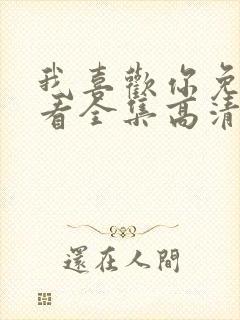 我喜歡你免
看全集高清
還在人間